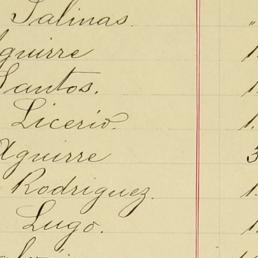 Salinas. "
Aguirre 1.
Santos. 1.
Licerio. 1.
Aguirre 3
Rodriguez. 1.
Lugo. 1.